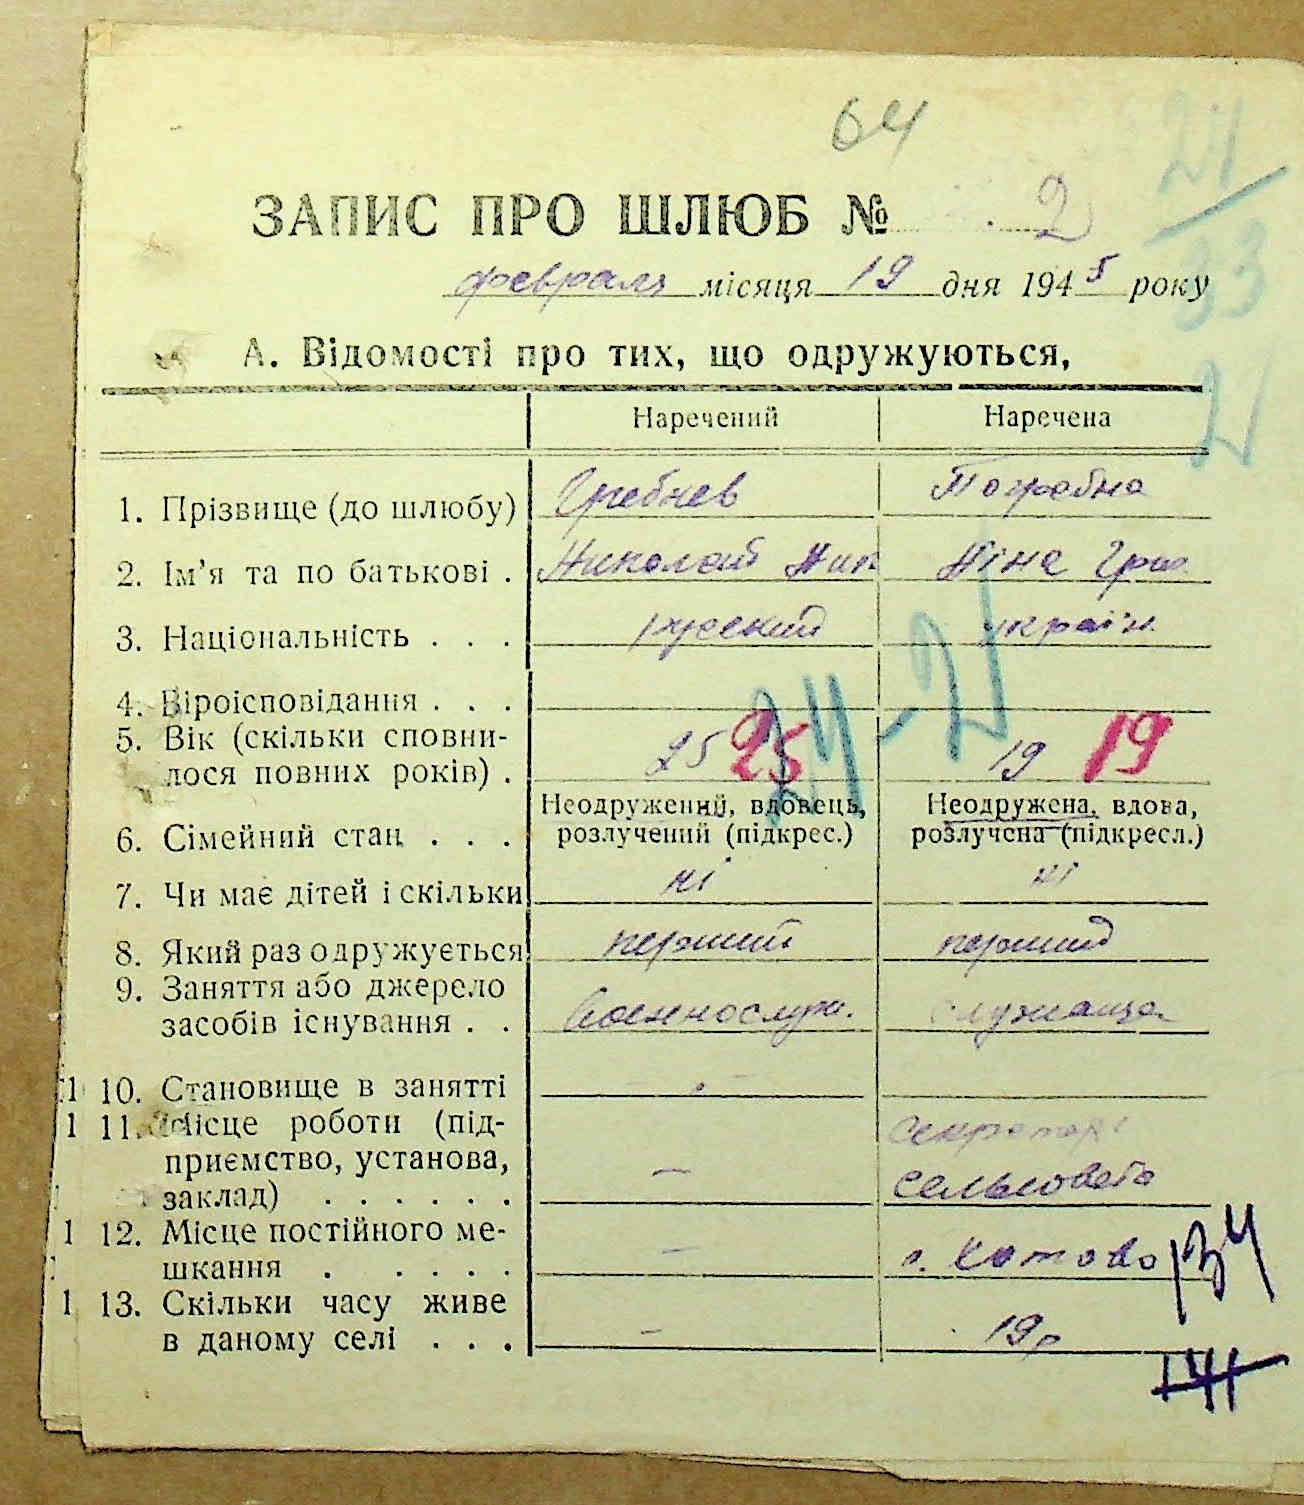 64
24
33
21
ЗАПИС ПРО ШЛЮБ № 2
февраля місяця 19 дня 1945 року
А. Відомості про тих, що одружуються,
Наречений Наречена
1. Прізвище (до шлюбу) Гребнев
2. Ім'я та по батькові . Николай Ник Ніна Гри
3. Національність . . . русский україн.
4. Віроісповідання . . .
24-21
5. Вік (скільки сповни-
лося повних років) . 25 25 19 19
Неодружений, вдовець, Неодружена, вдова,
6. Сімейний стан . . . розлучений (підкрес.) розлучена (підкресл.)
7. Чи має дітей і скільки ні ні
8. Який раз одружується перший перший
9. Заняття або джерело
засобів існування . . Военнослуж. служаща
1 10. Становище в занятті -
1 11. Місце роботи (під- секретарь
приємство, установа, - сельсовета
заклад) . . . . . .
1 12. Місце постійного ме-
шкання . . . . . - с. Котово 134
1 13. Скільки часу живе
в даному селі . . . - 19р
141